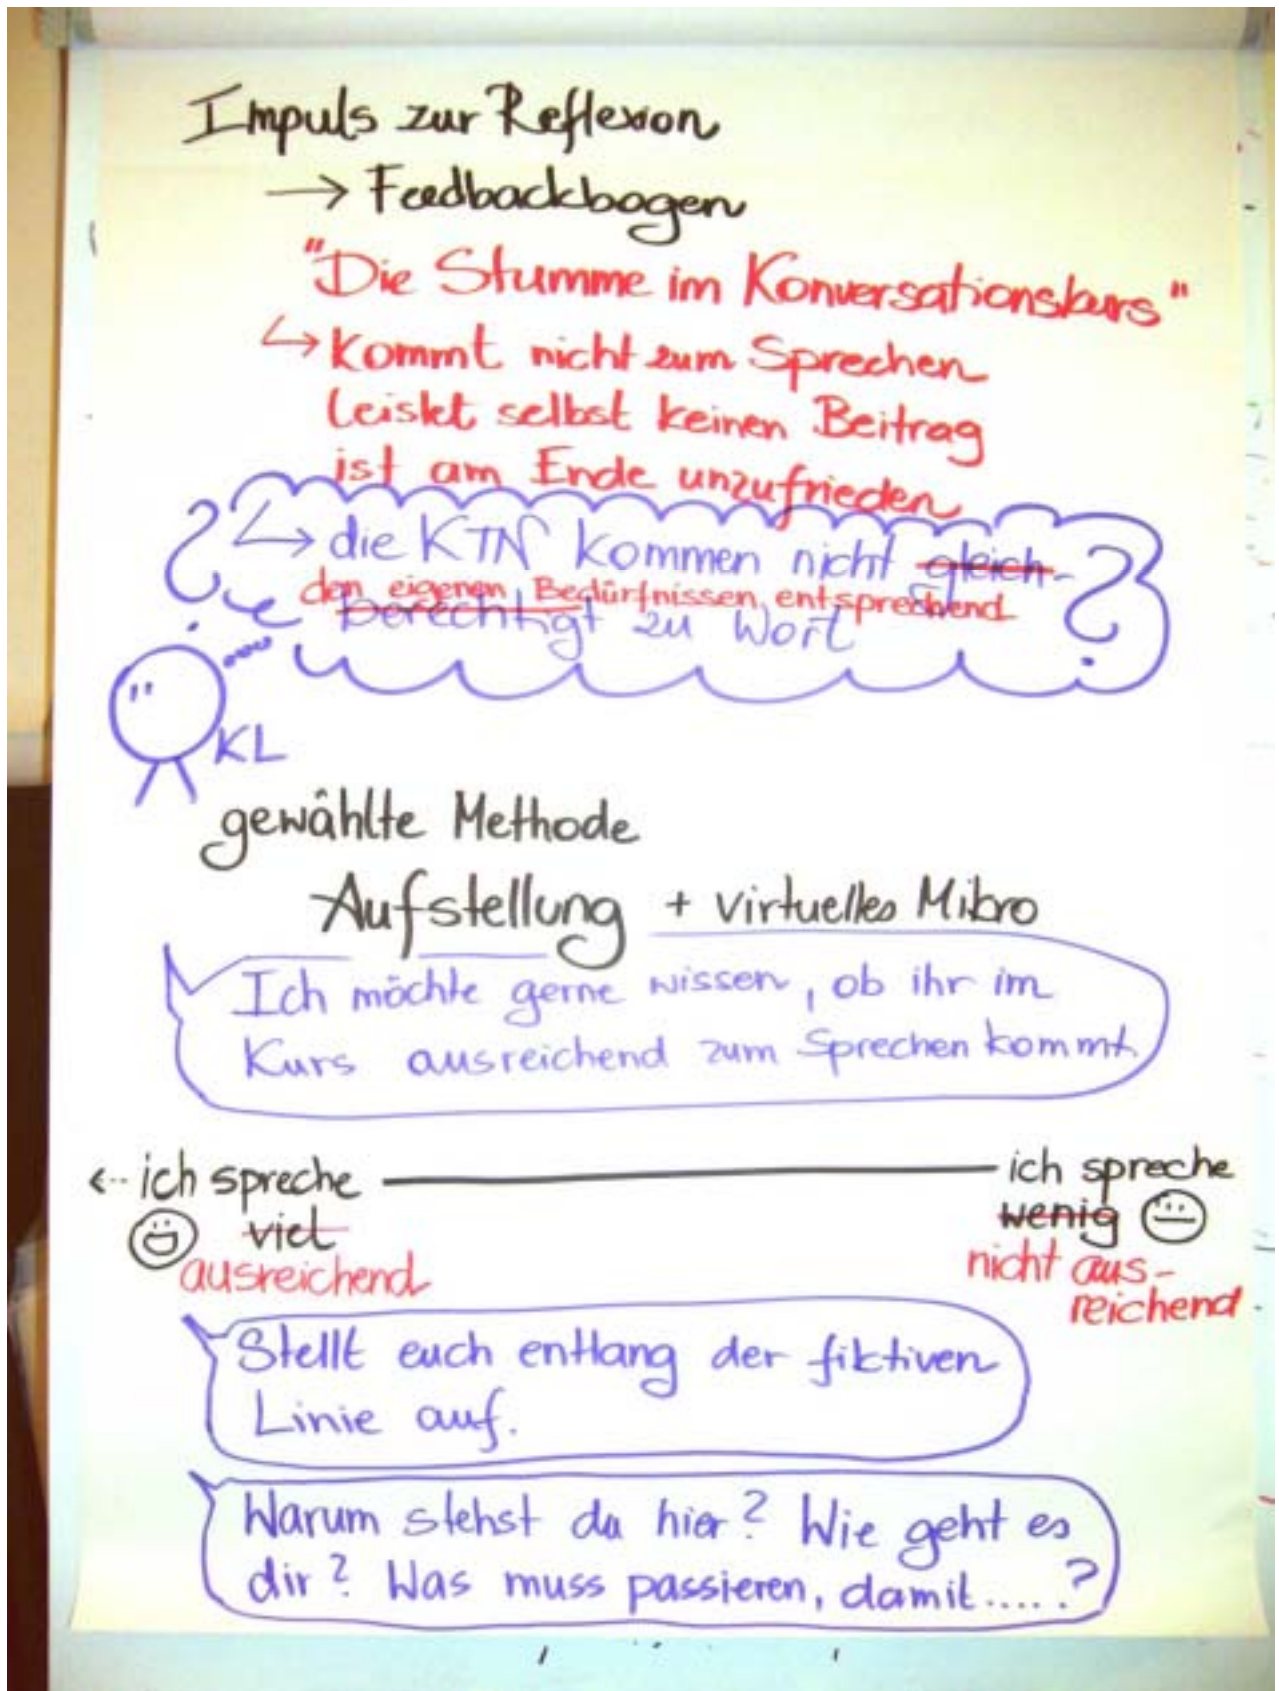 Impuls zur Reflexion
→ Feedbackbogen
"Die Stumme im Konversationskurs"
↳ Kommt nicht zum Sprechen
Leistet selbst keinen Beitrag
ist am Ende unzufrieden
? ↳ die KTN kommen nicht gleich- ?
den eigenen Bedürfnissen entsprechend
berechtigt zu Wort
KL
gewählte Methode
Aufstellung + virtuelles Mikro
Ich möchte gerne wissen, ob ihr im
Kurs ausreichend zum Sprechen kommt
ich spreche ich spreche
viel wenig
ausreichend nicht aus-
reichend
Stellt euch entlang der fiktiven
Linie auf.
Warum stehst du hier? Wie geht es
dir? Was muss passieren, damit.....?